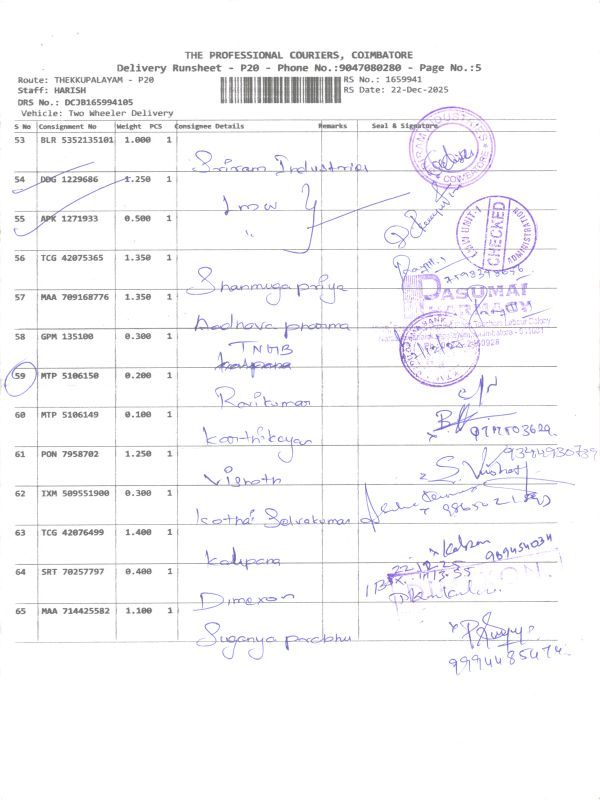 THE PROFESSIONAL COURIERS, COIMBATORE
Delivery Runsheet - P20 - Phone No.:9047080280 - Page No.:5
Route: THEKKUPALAYAM - P20 RS No.: 1659941
Staff: HARISH RS Date: 22-Dec-2025
DRS No.: DCJB165994105
Vehicle: Two Wheeler Delivery
S No Consignment No Weight PCS Consignee Details Remarks Seal & Signature
53 BLR 5352135101 1.000 1
Sriram Industries
COIMBATORE
54 DDG 1229686 1.250 1
LMW
55 APK 1271933 0.500 1
"
LMW UNIT-1 CHECKED ADMINISTRATION
56 TCG 42075365 1.350 1
Shanmuga priya
57 MAA 709168776 1.350 1
Madhava pharma
PASUMAI PHARMACY
58 GPM 135100 0.300 1
TNGB
kalpana
59 MTP 5106150 0.200 1
Ravikumar
60 MTP 5106149 0.100 1
Karthikeyan
61 PON 7958702 1.250 1
Vignoth
9344930739
62 IXM 509551900 0.300 1
Kothai Selvakumar
63 TCG 42076499 1.400 1
Kalpana
Kalpana
64 SRT 70257797 0.400 1
Dimexon
22.12.25
13.35
65 MAA 714425582 1.100 1
Suganya prabhu
9994485474